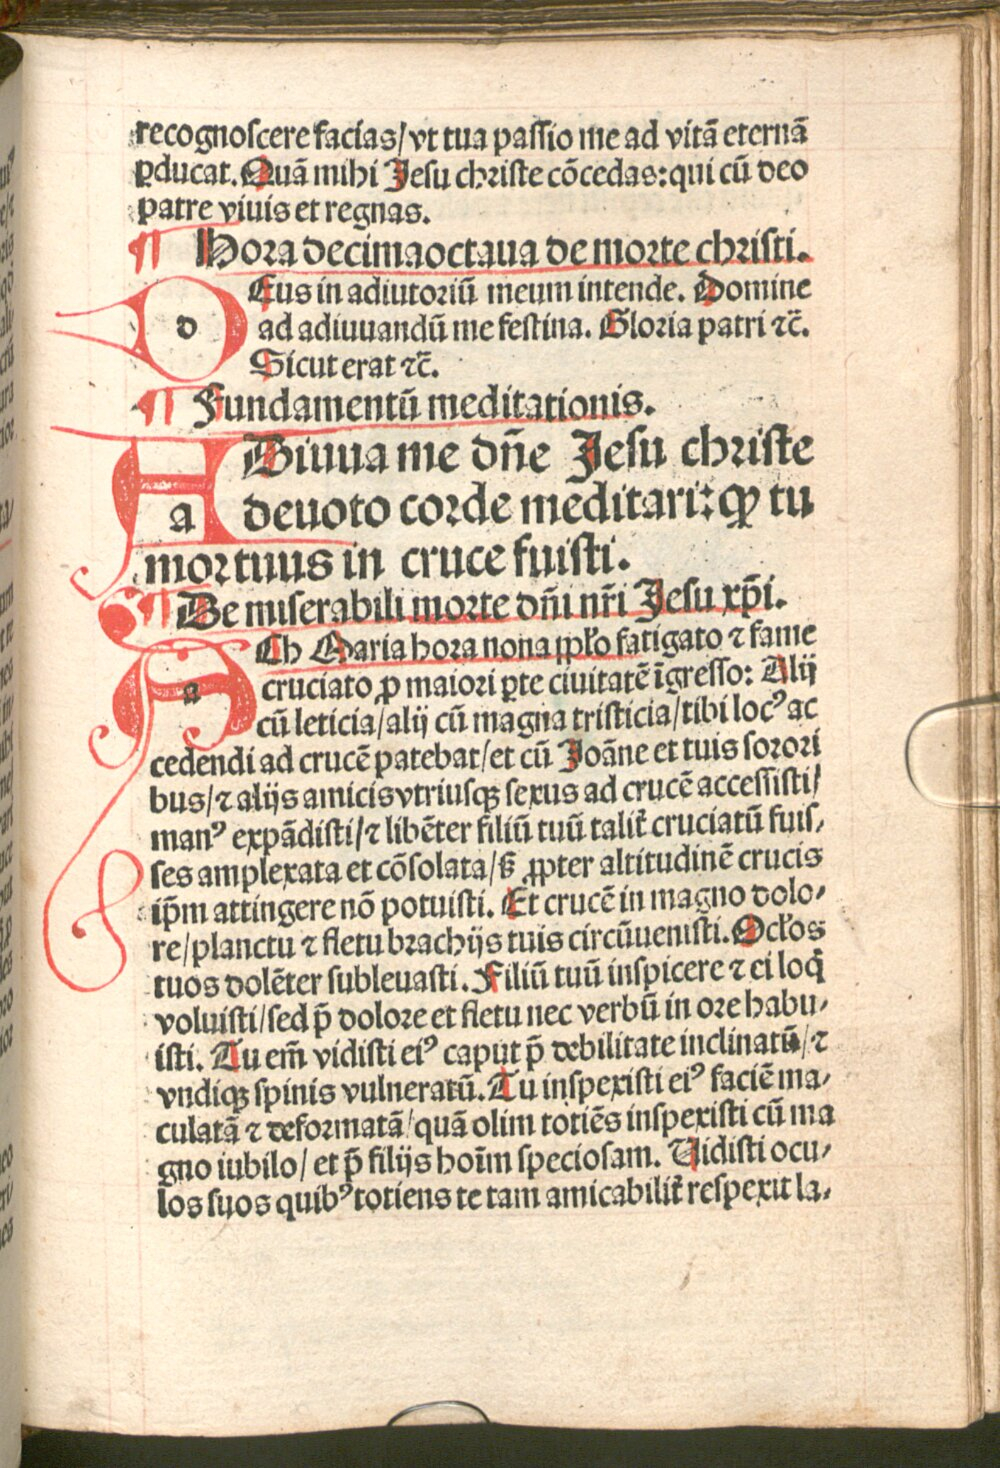 recognoscere facias/ vt tua passio me ad vitā eternā
ꝑducat. Quā mihi Jesu christe cōcedas: qui cū deo
patre viuis et regnas.
¶ Hora decimaoctaua de morte christi.
dEus in adiutoriū meum intende. Domine
ad adiuuandū me festina. Gloria patri ⁊c̄.
Sicut erat ⁊c̄.
¶ Fundamentū meditationis.
aDiuua me dn̄e Jesu christe
deuoto corde meditari: ꝙ tu
mortuus in cruce fuisti.
¶ De miserabili morte dn̄i nr̄i Jesu xp̄i.
aCh Maria hora nona ꝓplo fatigato ⁊ fame
cruciato ꝓ maiori ꝑte ciuitatē īgresso: Alij
cū leticia/ alij cū magna tristicia/ tibi locꝰ ac
cedendi ad crucē patebat/ et cū Joāne et tuis sorori
bus/ ⁊ alijs amicis vtriusqꝫ sexus ad crucē accessisti/
manꝰ expādisti/ ⁊ libēter filiū tuū talit̄ cruciatū fuis-
ses amplexata et cōsolata/ ß ꝓpter altitudinē crucis
ip̄m attingere nō potuisti. Et crucē in magno dolo-
re/ planctu ⁊ fletu brachijs tuis circūuenisti. Ocl̓os
tuos dolēter subleuasti. Filiū tuū inspicere ⁊ ei loq̄
voluisti/ sed p̄ dolore et fletu nec verbū in ore habu-
isti. Tu em̄ vidisti eiꝰ caput p̄ debilitate inclinatū/ ⁊
vndiqꝫ spinis vulneratū. Tu inspexisti eiꝰ faciē ma-
culatā ⁊ deformatā/ quā olim totiēs inspexisti cū ma
gno iubilo/ et p̄ filijs hoīm speciosam. Vidisti ocu-
los suos quibꝰ totiens te tam amicabilit̄ respexit la-